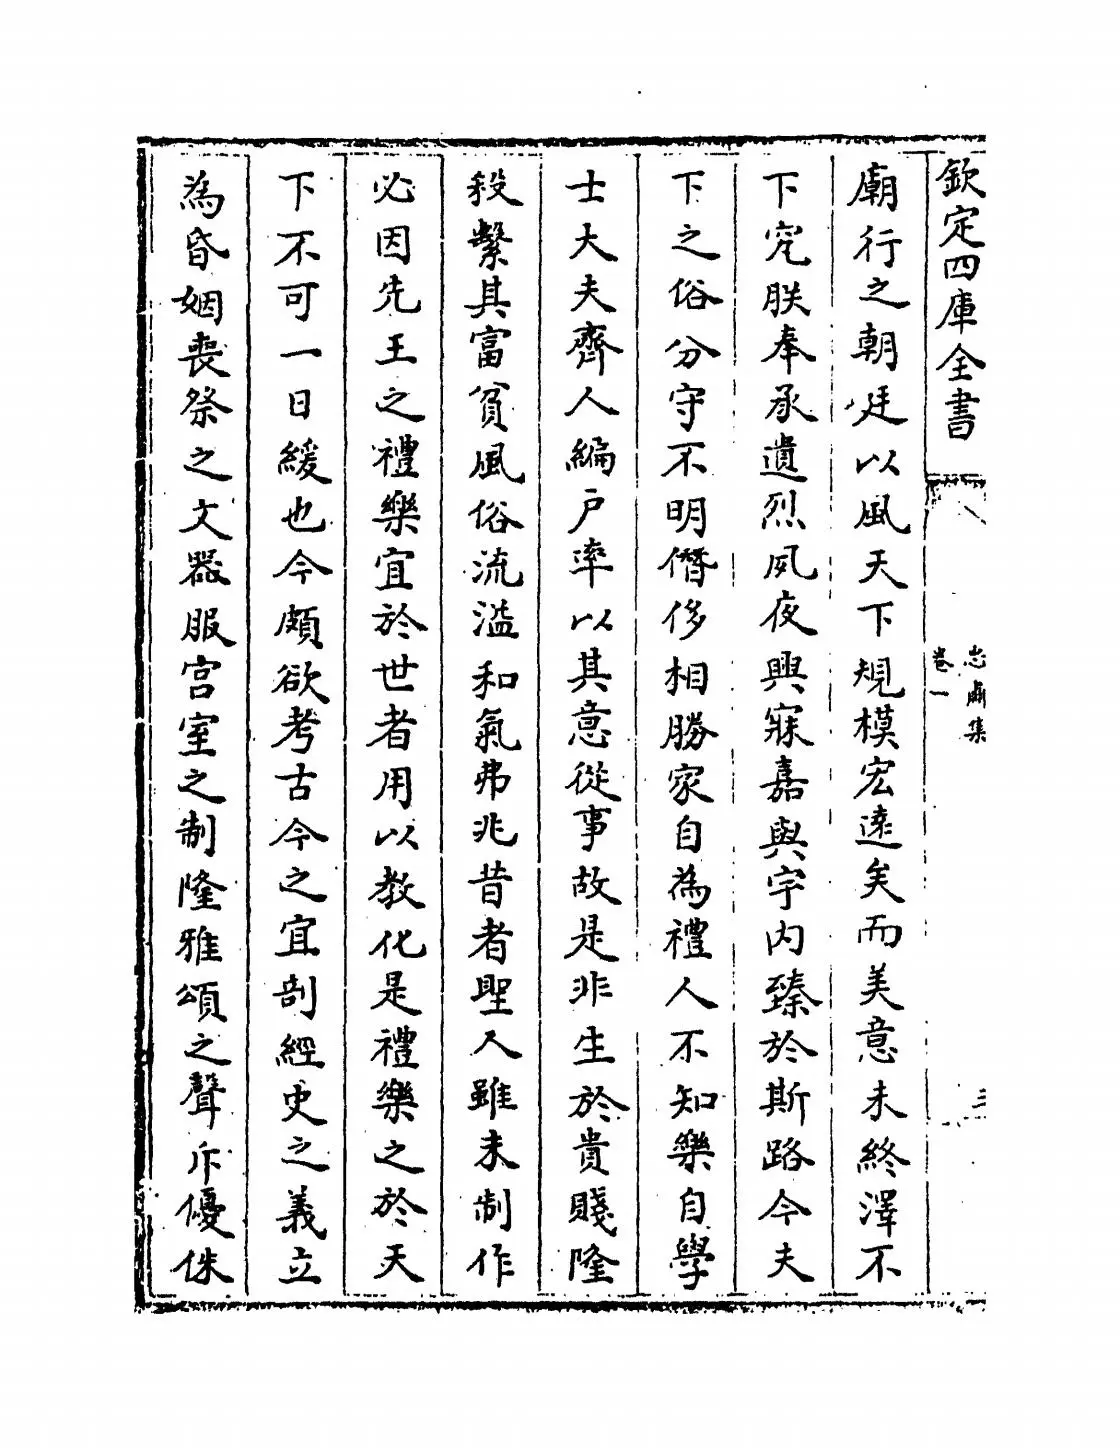 欽定四庫全書
忠肅集
卷一
三
廟行之朝廷以風天下規模宏遠矣而美意未終澤不
下究朕奉承遺烈夙夜興寐嘉與宇内臻於斯路今夫
下之俗分守不明僭侈相勝家自為禮人不知樂自學
士大夫齊人編户率以其意從事故是非生於貴賤隆
殺繫其富貧風俗流溢和氣弗兆昔者聖人雖未制作
必因先王之禮樂宜於世者用以教化是禮樂之於天
下不可一日緩也今頗欲考古今之宜剖經史之義立
為昏姻喪祭之文器服宫室之制隆雅頌之聲斥優侏